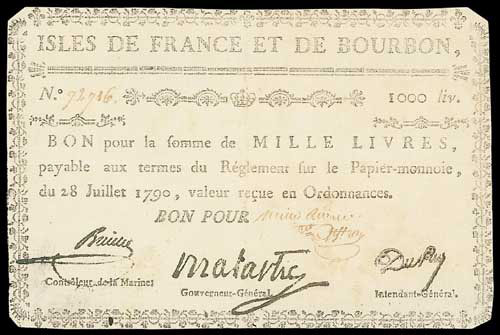 ISLES DE FRANCE ET DE BOURBON,
N.º 72716. 1000 liv.
BON pour la somme de MILLE LIVRES,
payable aux termes du Réglement sur le Papier-monnoie,
du 28 Juillet 1790, valeur reçue en Ordonnances.
BON POUR
Malartic
Contrôleur de la Marine.
Gouverneur-Général.
Intendant-Général.